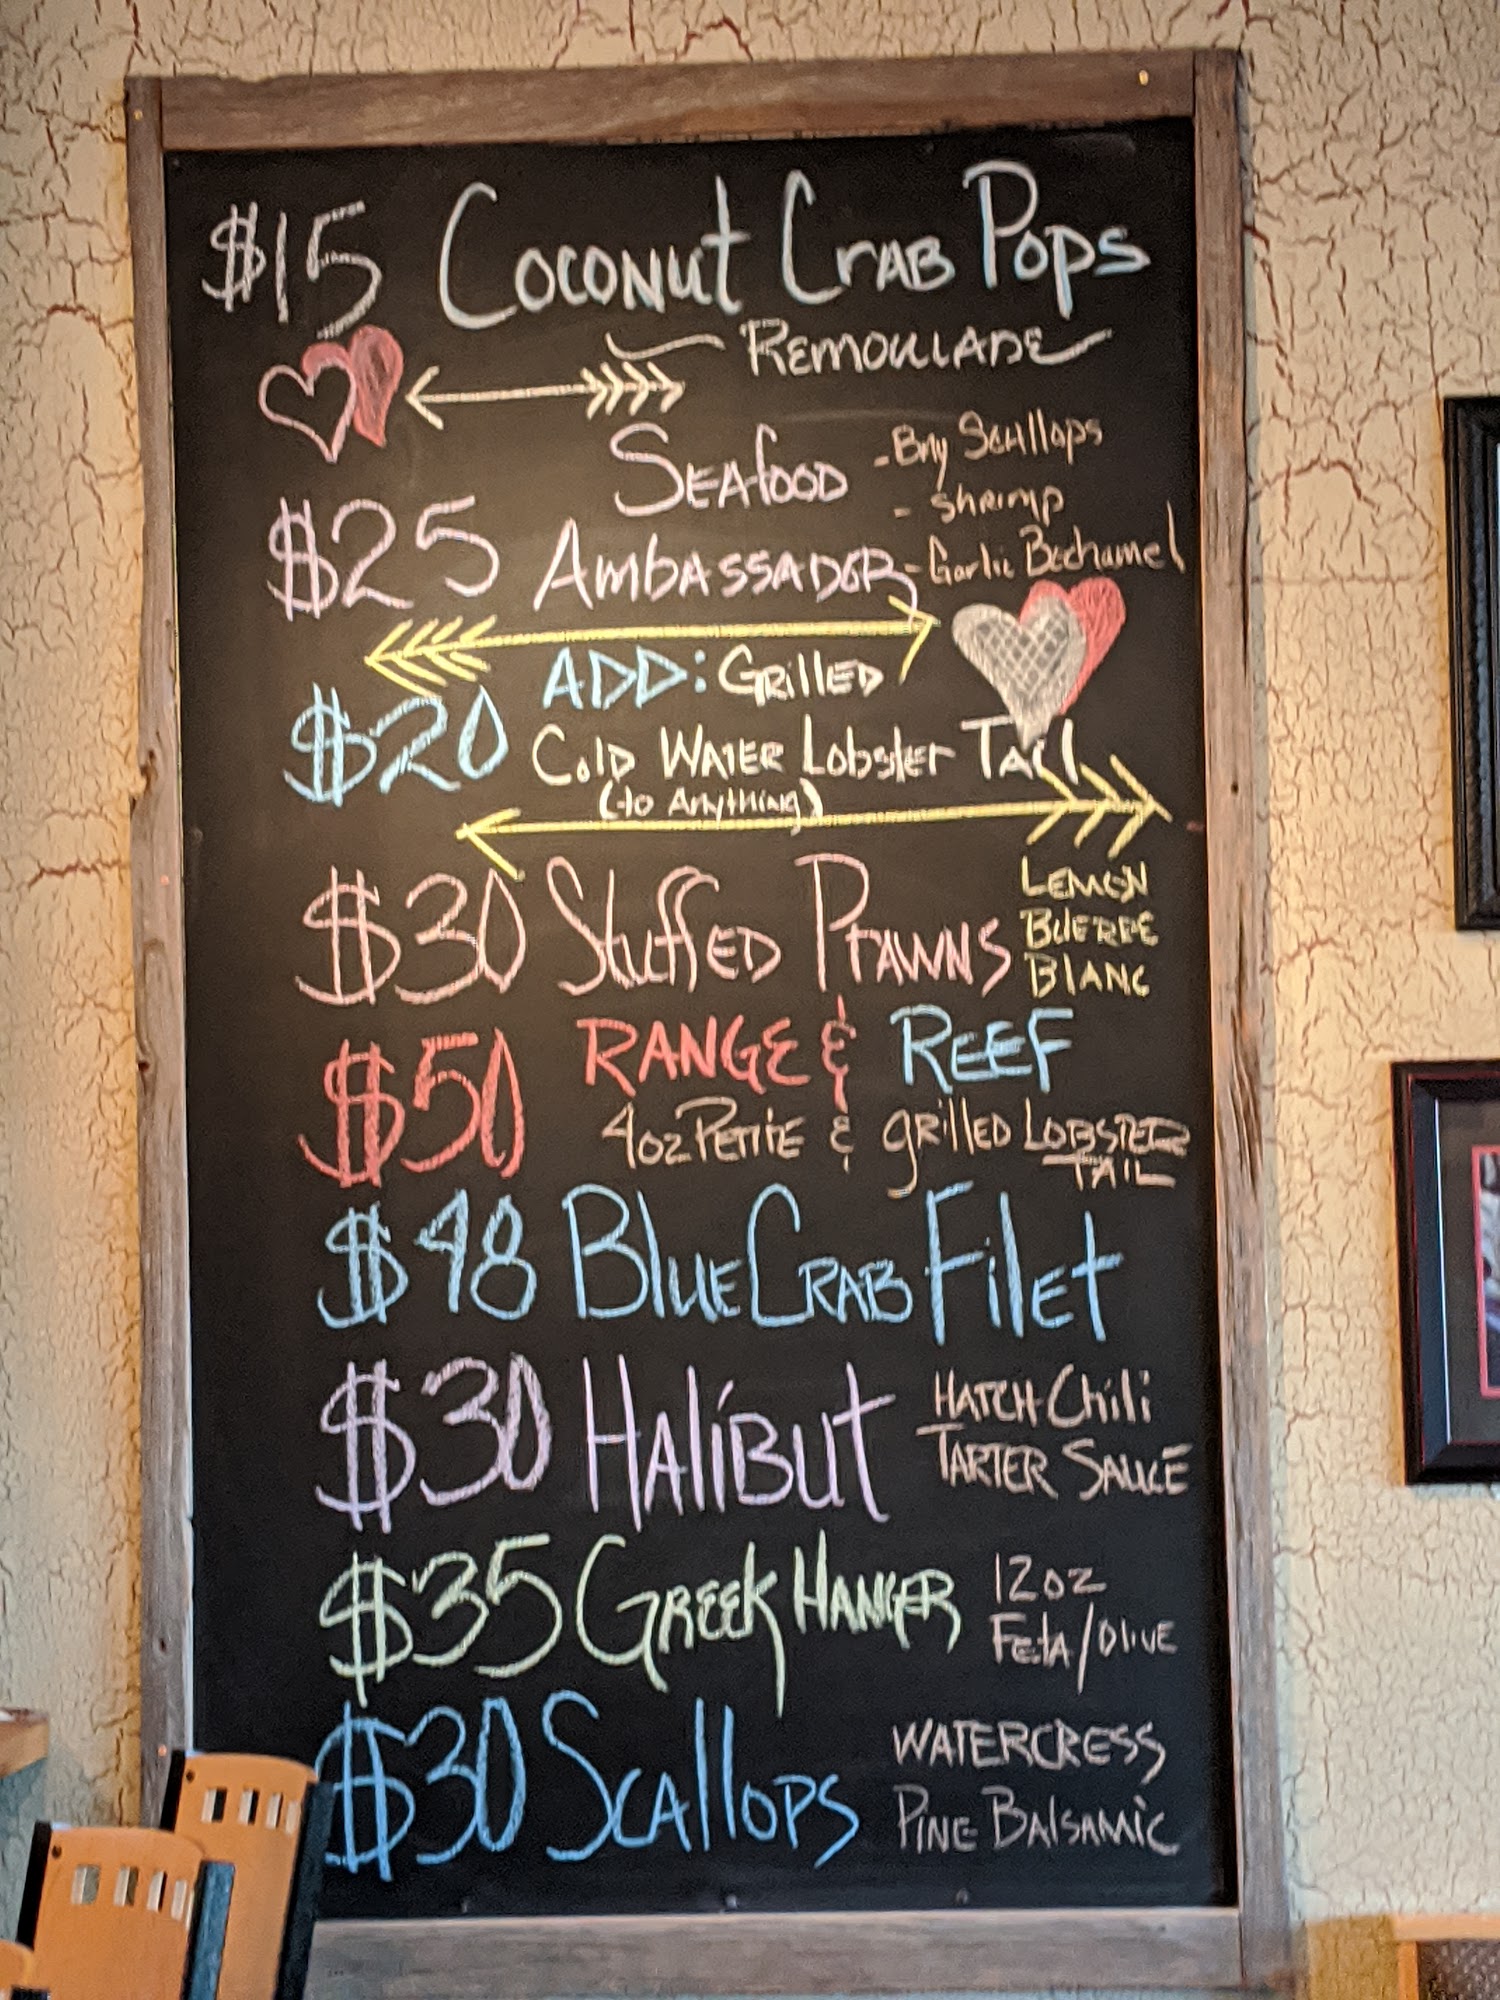 $15 Coconut Crab Pops
Remoulade
$25 Seafood Ambassador
- Bay Scallops
- Shrimp
- Garlic Bechamel
$20 ADD: Grilled
Cold Water Lobster Tail
(to Anything)
$30 Stuffed Prawns
Lemon
Buerre
Blanc
$50 RANGE & REEF
4oz Petite & grilled Lobster
TAIL
$48 Blue Crab Filet
$30 Halibut
HATCH Chili
TARTER SAUCE
$35 Greek Hanger
12oz
Feta/Olive
$30 Scallops
WATERCRESS
Pine Balsamic